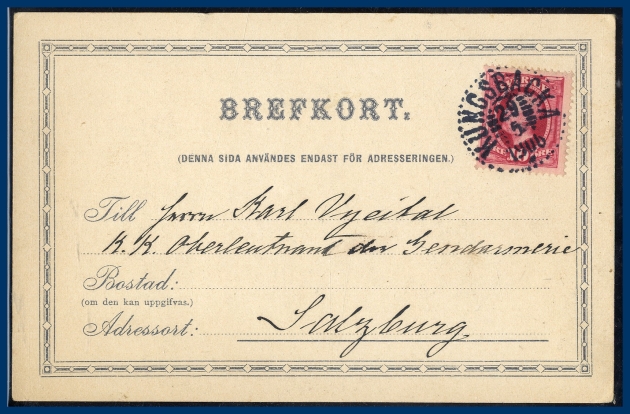 BREFKORT.
KUNGSBACKA
29
5
1906
(DENNA SIDA ANVÄNDES ENDAST FÖR ADRESSERINGEN.)
Till Herrn Karl Vycital
K. K. Oberleutnant der Gendarmerie
Bostad:
(om den kan uppgifvas.)
Adressort: Salzburg